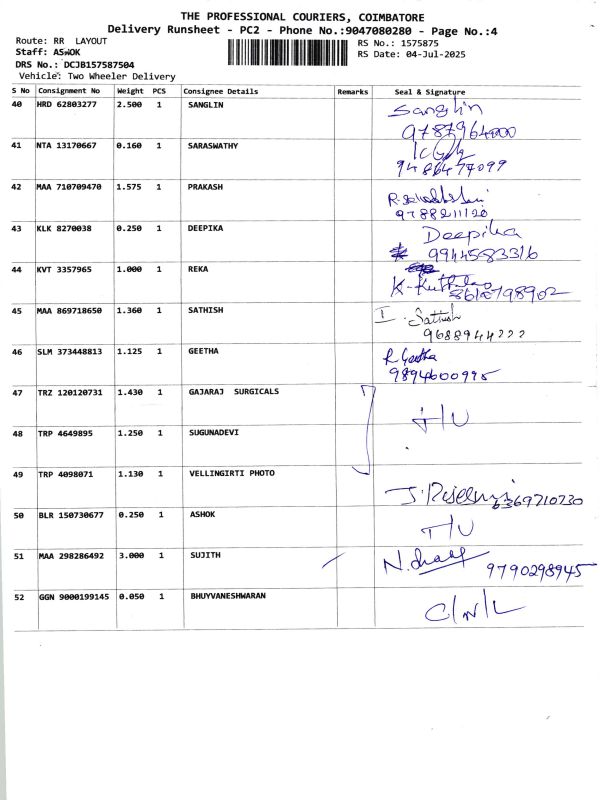 THE PROFESSIONAL COURIERS, COIMBATORE
Delivery Runsheet - PC2 - Phone No.:9047080280 - Page No.:4
Route: RR LAYOUT
RS No.: 1575875
Staff: ASWOK
RS Date: 04-Jul-2025
DRS No.: DCJB157587504
Vehicle: Two Wheeler Delivery
S No Consignment No Weight PCS Consignee Details Remarks Seal & Signature
40 HRD 62803277 2.500 1 SANGLIN Sanglin
41 NTA 13170667 0.160 1 SARASWATHY
9486477099
42 MAA 710709470 1.575 1 PRAKASH
9788211120
43 KLK 8270038 0.250 1 DEEPIKA Deepika
9944583316
44 KVT 3357965 1.000 1 REKA
8610798902
45 MAA 869718650 1.360 1 SATHISH I. Sathish
9688944222
46 SLM 373448813 1.125 1 GEETHA R Geetha
9894600995
47 TRZ 120120731 1.430 1 GAJARAJ SURGICALS
48 TRP 4649895 1.250 1 SUGUNADEVI
49 TRP 4098071 1.130 1 VELLINGIRTI PHOTO
6369710730
50 BLR 150730677 0.250 1 ASHOK
51 MAA 298286492 3.000 1 SUJITH
9790298945
52 GGN 9000199145 0.050 1 BHUYVANESHWARAN C/N/L